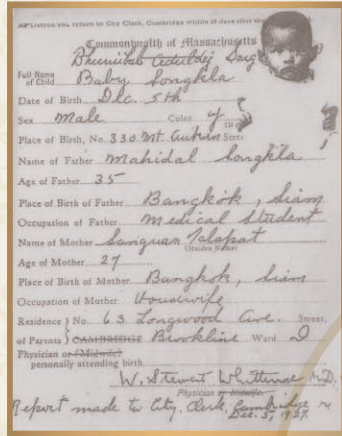 return to City Clerk, Cambridge within 15 days after the
Commonwealth of Massachusetts
Bhumibol Aduldej Song
Full Name of Child Baby Songkla
Date of Birth Dec. 5th
Sex male Color y
Place of Birth, No. 330 Mt. Auburn Street
Name of Father Mahidal Songkla
Age of Father 35
Place of Birth of Father Bangkok, Siam
Occupation of Father Medical Student
Name of Mother
(Maiden Name)
Age of Mother 27
Place of Birth of Mother Bangkok, Siam
Occupation of Mother Housewife
Residence of Parents } No. 63 Longwood Ave. Street,
CAMBRIDGE Brookline Ward
Physician or (Midwife)
personally attending birth
W. Stewart Whittemore M.D.
Physician or Midwife.
Report made to City Clerk, Cambridge
Dec. 1927.